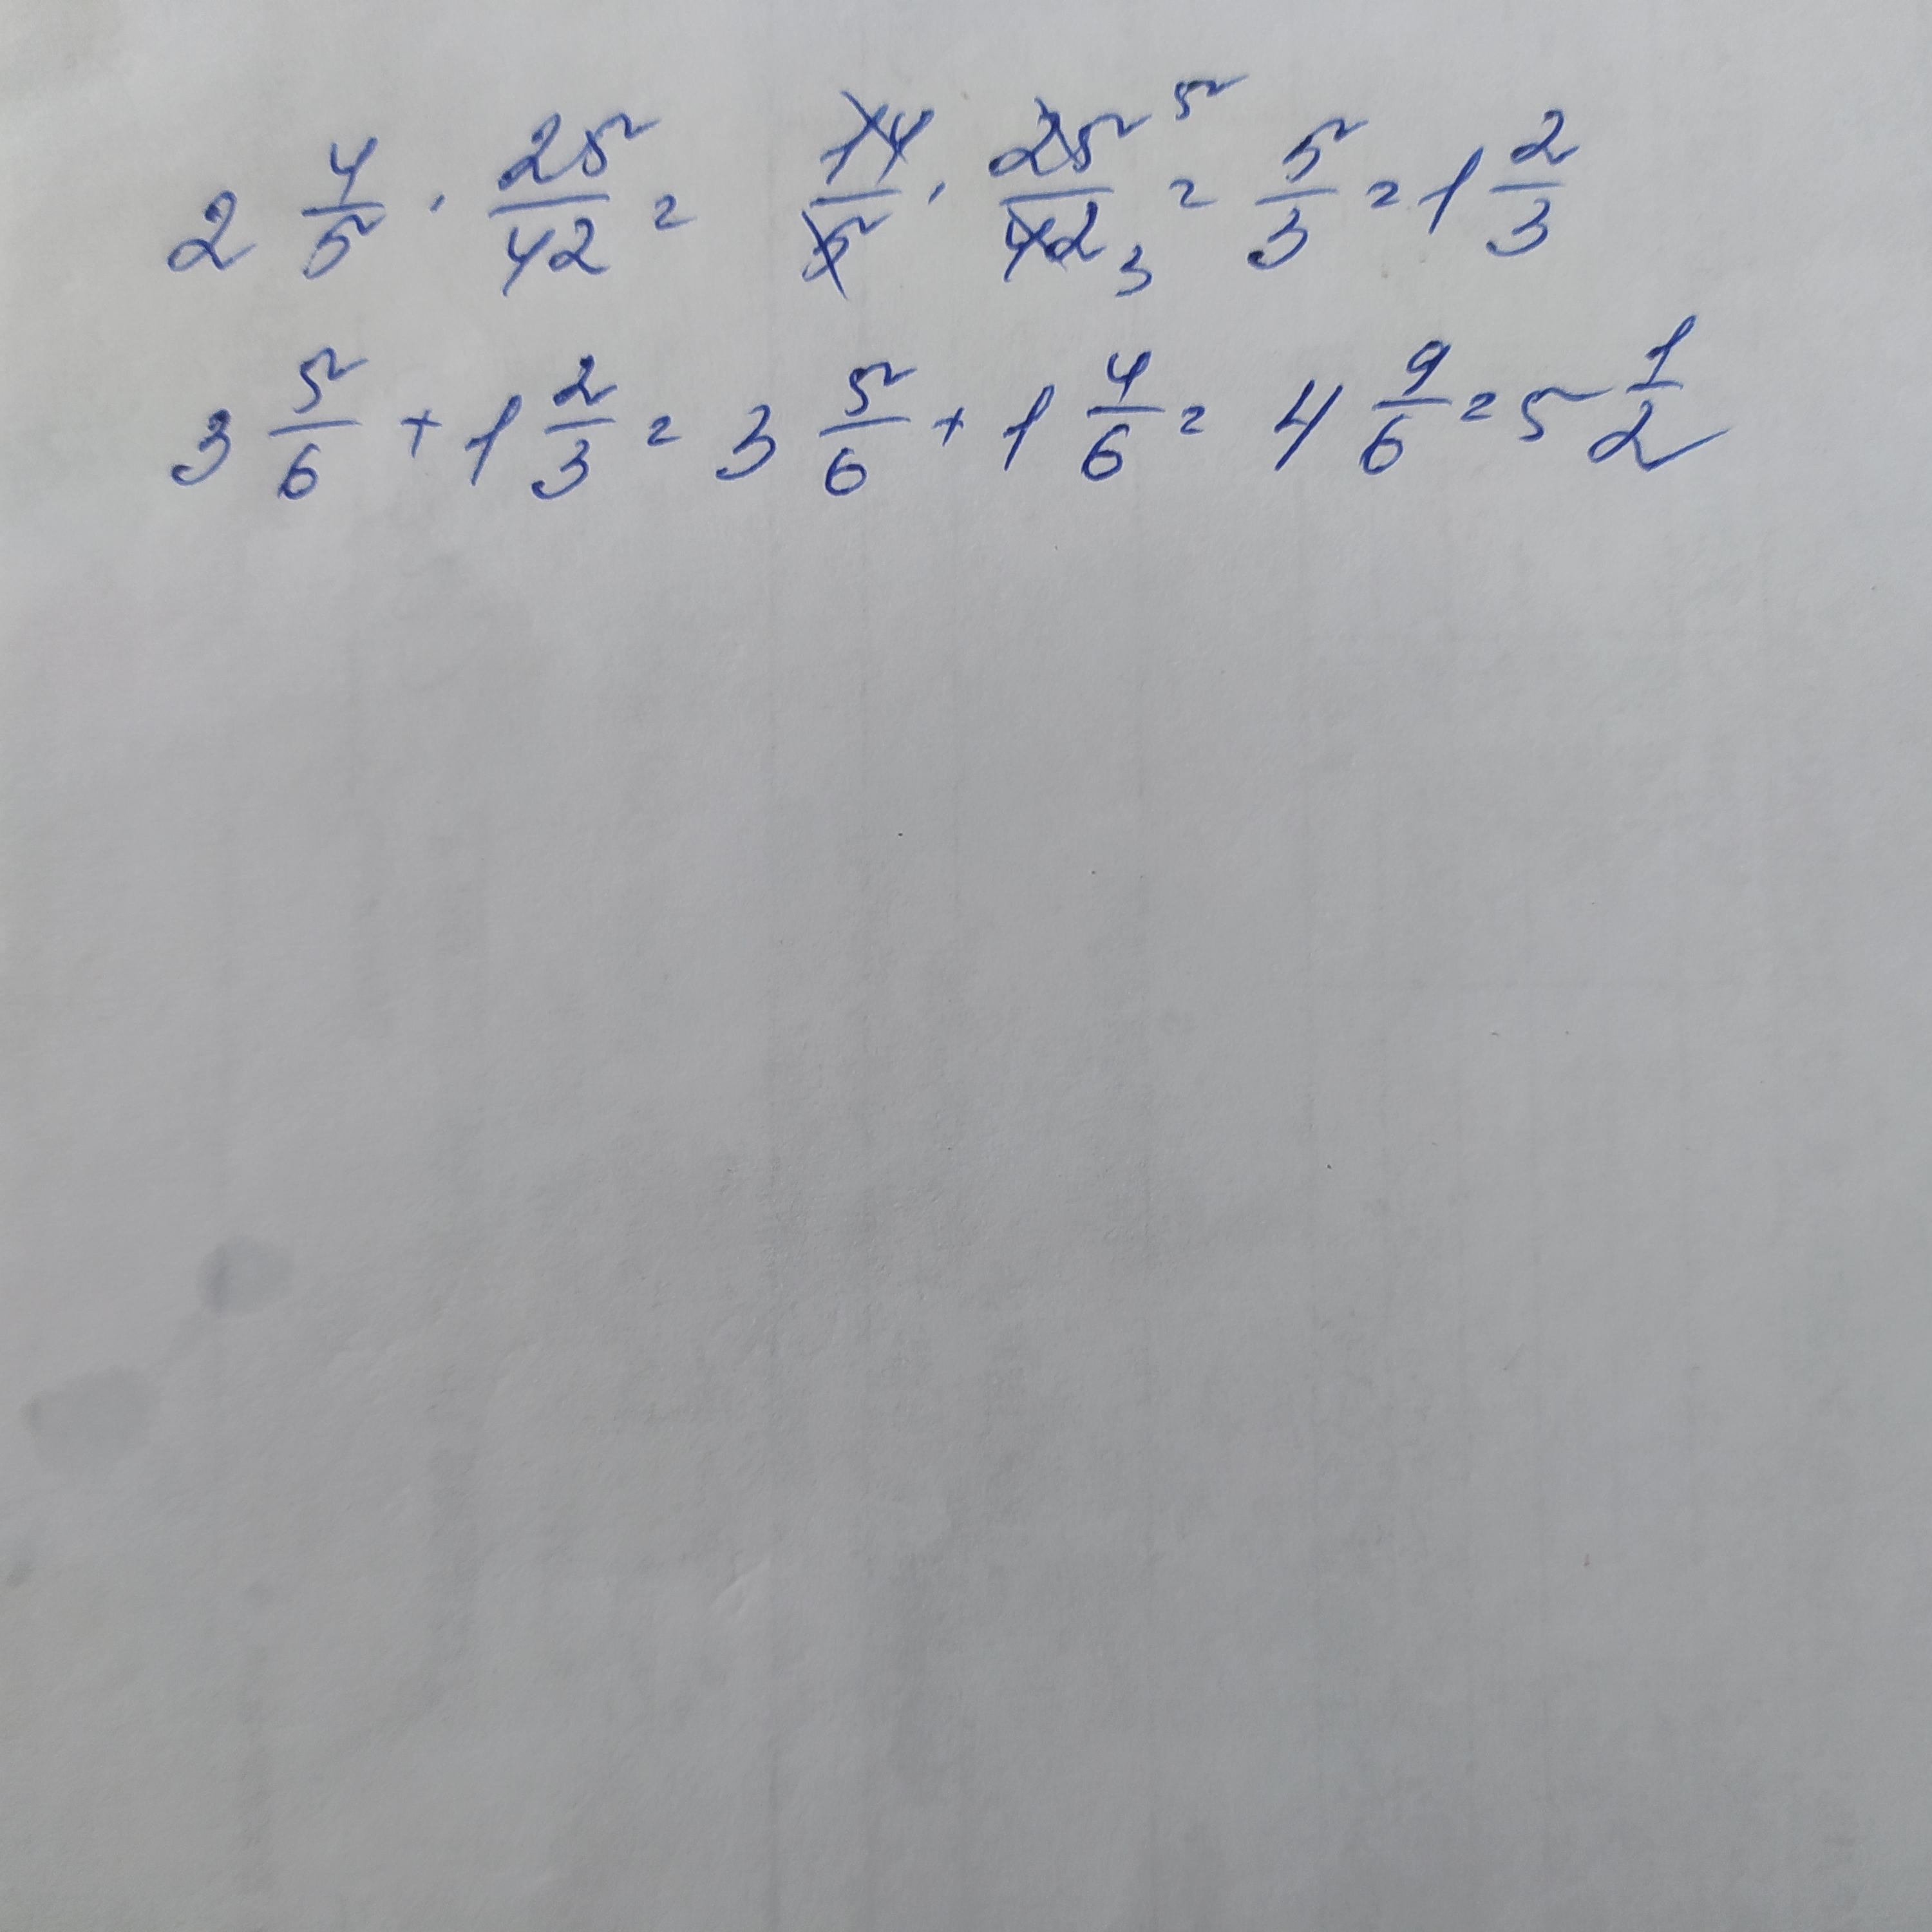 2 4/5 · 25/42 = 14/5 · 25/42 5 3 = 5/3 = 1 2/3
3 5/6 + 1 2/3 = 3 5/6 + 1 4/6 = 4 9/6 = 5 1/2